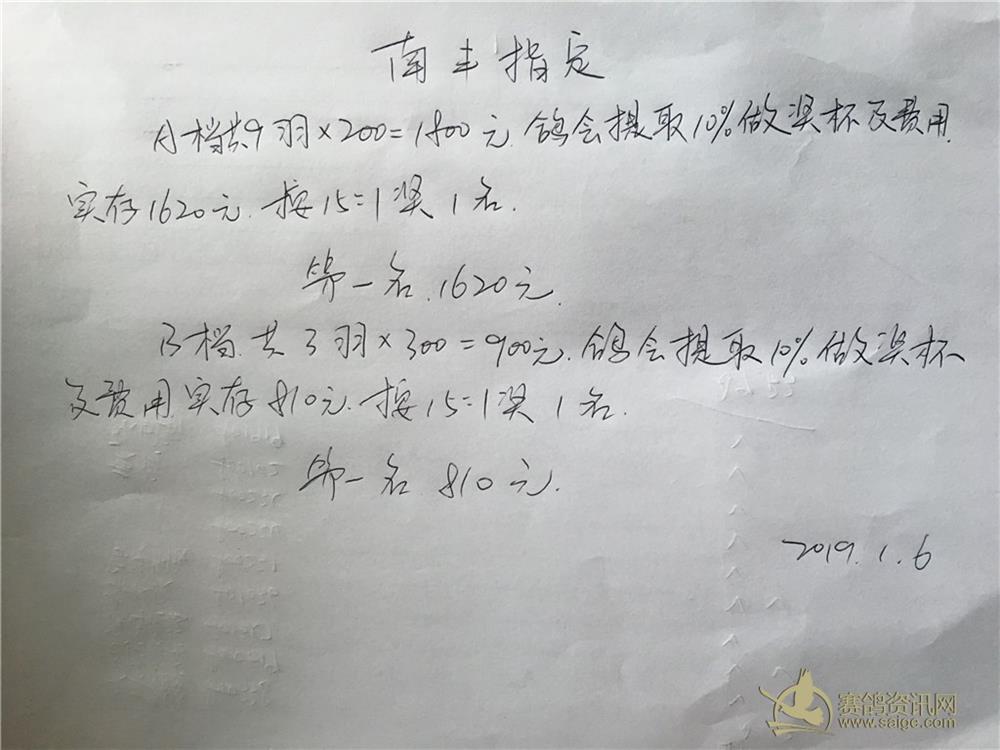 南丰指定
A档共9羽×200=1800元.鸽会提取10%做奖杯及费用
实存1620元.按15=1奖1名.
第一名.1620元.
B档.共3羽×300=900元.鸽会提取10%做奖杯
及费用.实存810元.按15=1奖1名.
第一名 810元.
2019.1.6
赛鸽资讯网
www.saigc.com